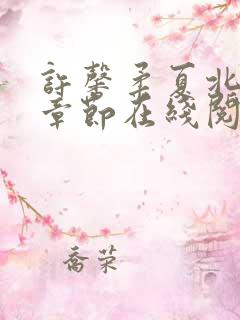 許馨柔夏北
章節在綫閱
喬荣